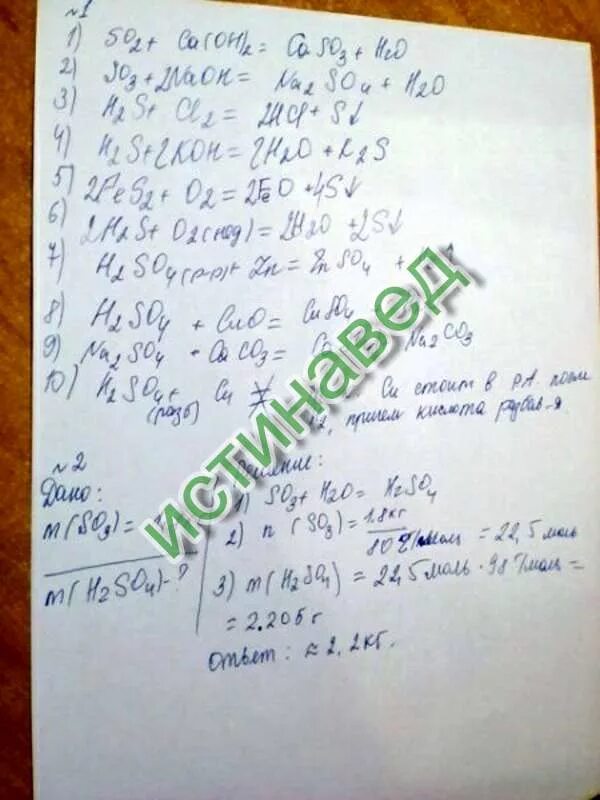 №1
1) SO2 + Ca(OH)2 = CaSO3 + H2O
2) SO3 + 2NaOH = Na2SO4 + H2O
3) H2S + Cl2 = 2HCl + S↓
4) H2S + 2KOH = 2H2O + K2S
5) 2FeS2 + O2 = 2FeO + 4S↓
6) 2H2S + O2 (нед) = 2H2O + 2S↓
7) H2SO4 (р-р) + Zn = ZnSO4 +
8) H2SO4 + CuO = CuSO4
9) Na2SO4 + CaCO3 = Na2CO3
10) H2SO4 + Cu Cu стоит в р.А. после
(разб) причем кислота разбав-я
ИСТИНАВЕД
№2
Дано:
m(SO3) =
m(H2SO4) - ?
Решение:
1) SO3 + H2O = H2SO4
2) n (SO3) = 1.8кг / 80 г/моль = 22,5 моль
3) m(H2SO4) = 22,5 моль · 98 г/моль =
= 2.205 г
Ответ: ≈ 2,2 кг.